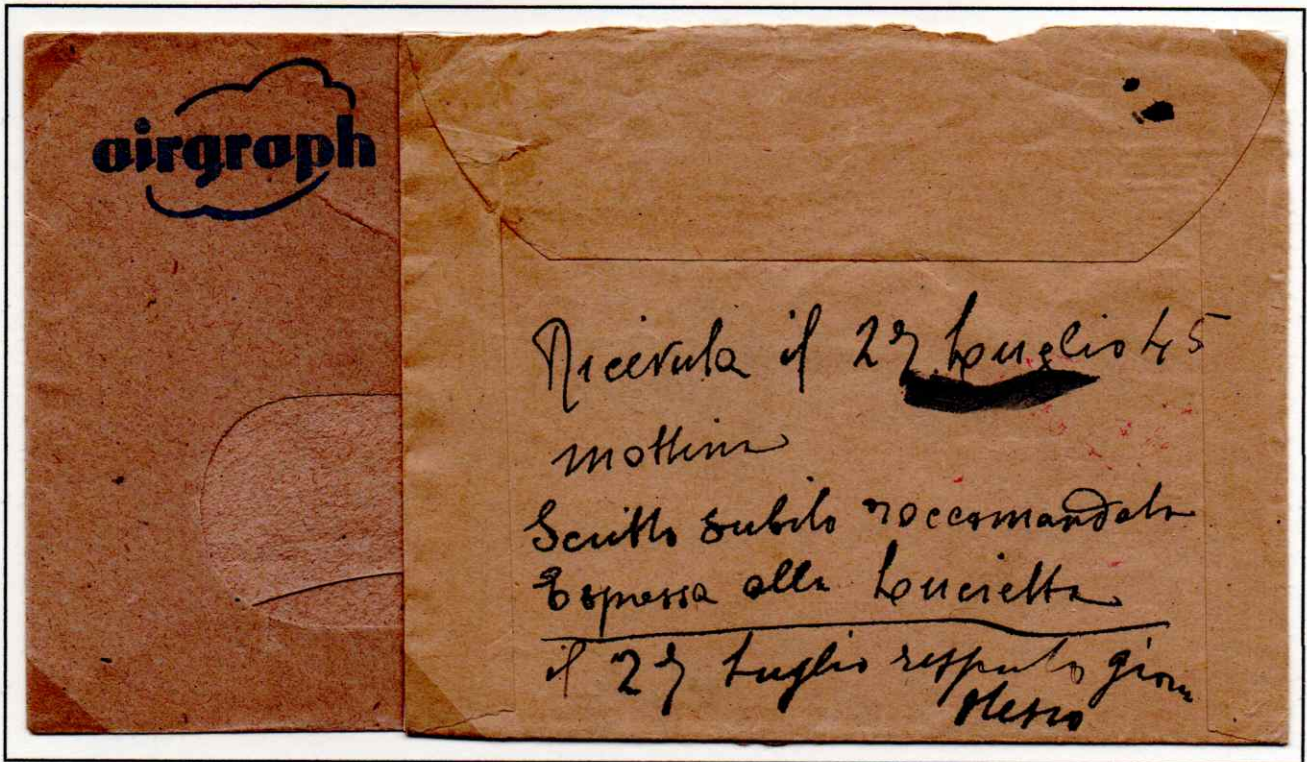 airgraph
Ricevuta il 27 Luglio 45
mattina
Scritto subito raccomandata
Espressa alla Lucietta
il 27 Luglio giorno
stesso